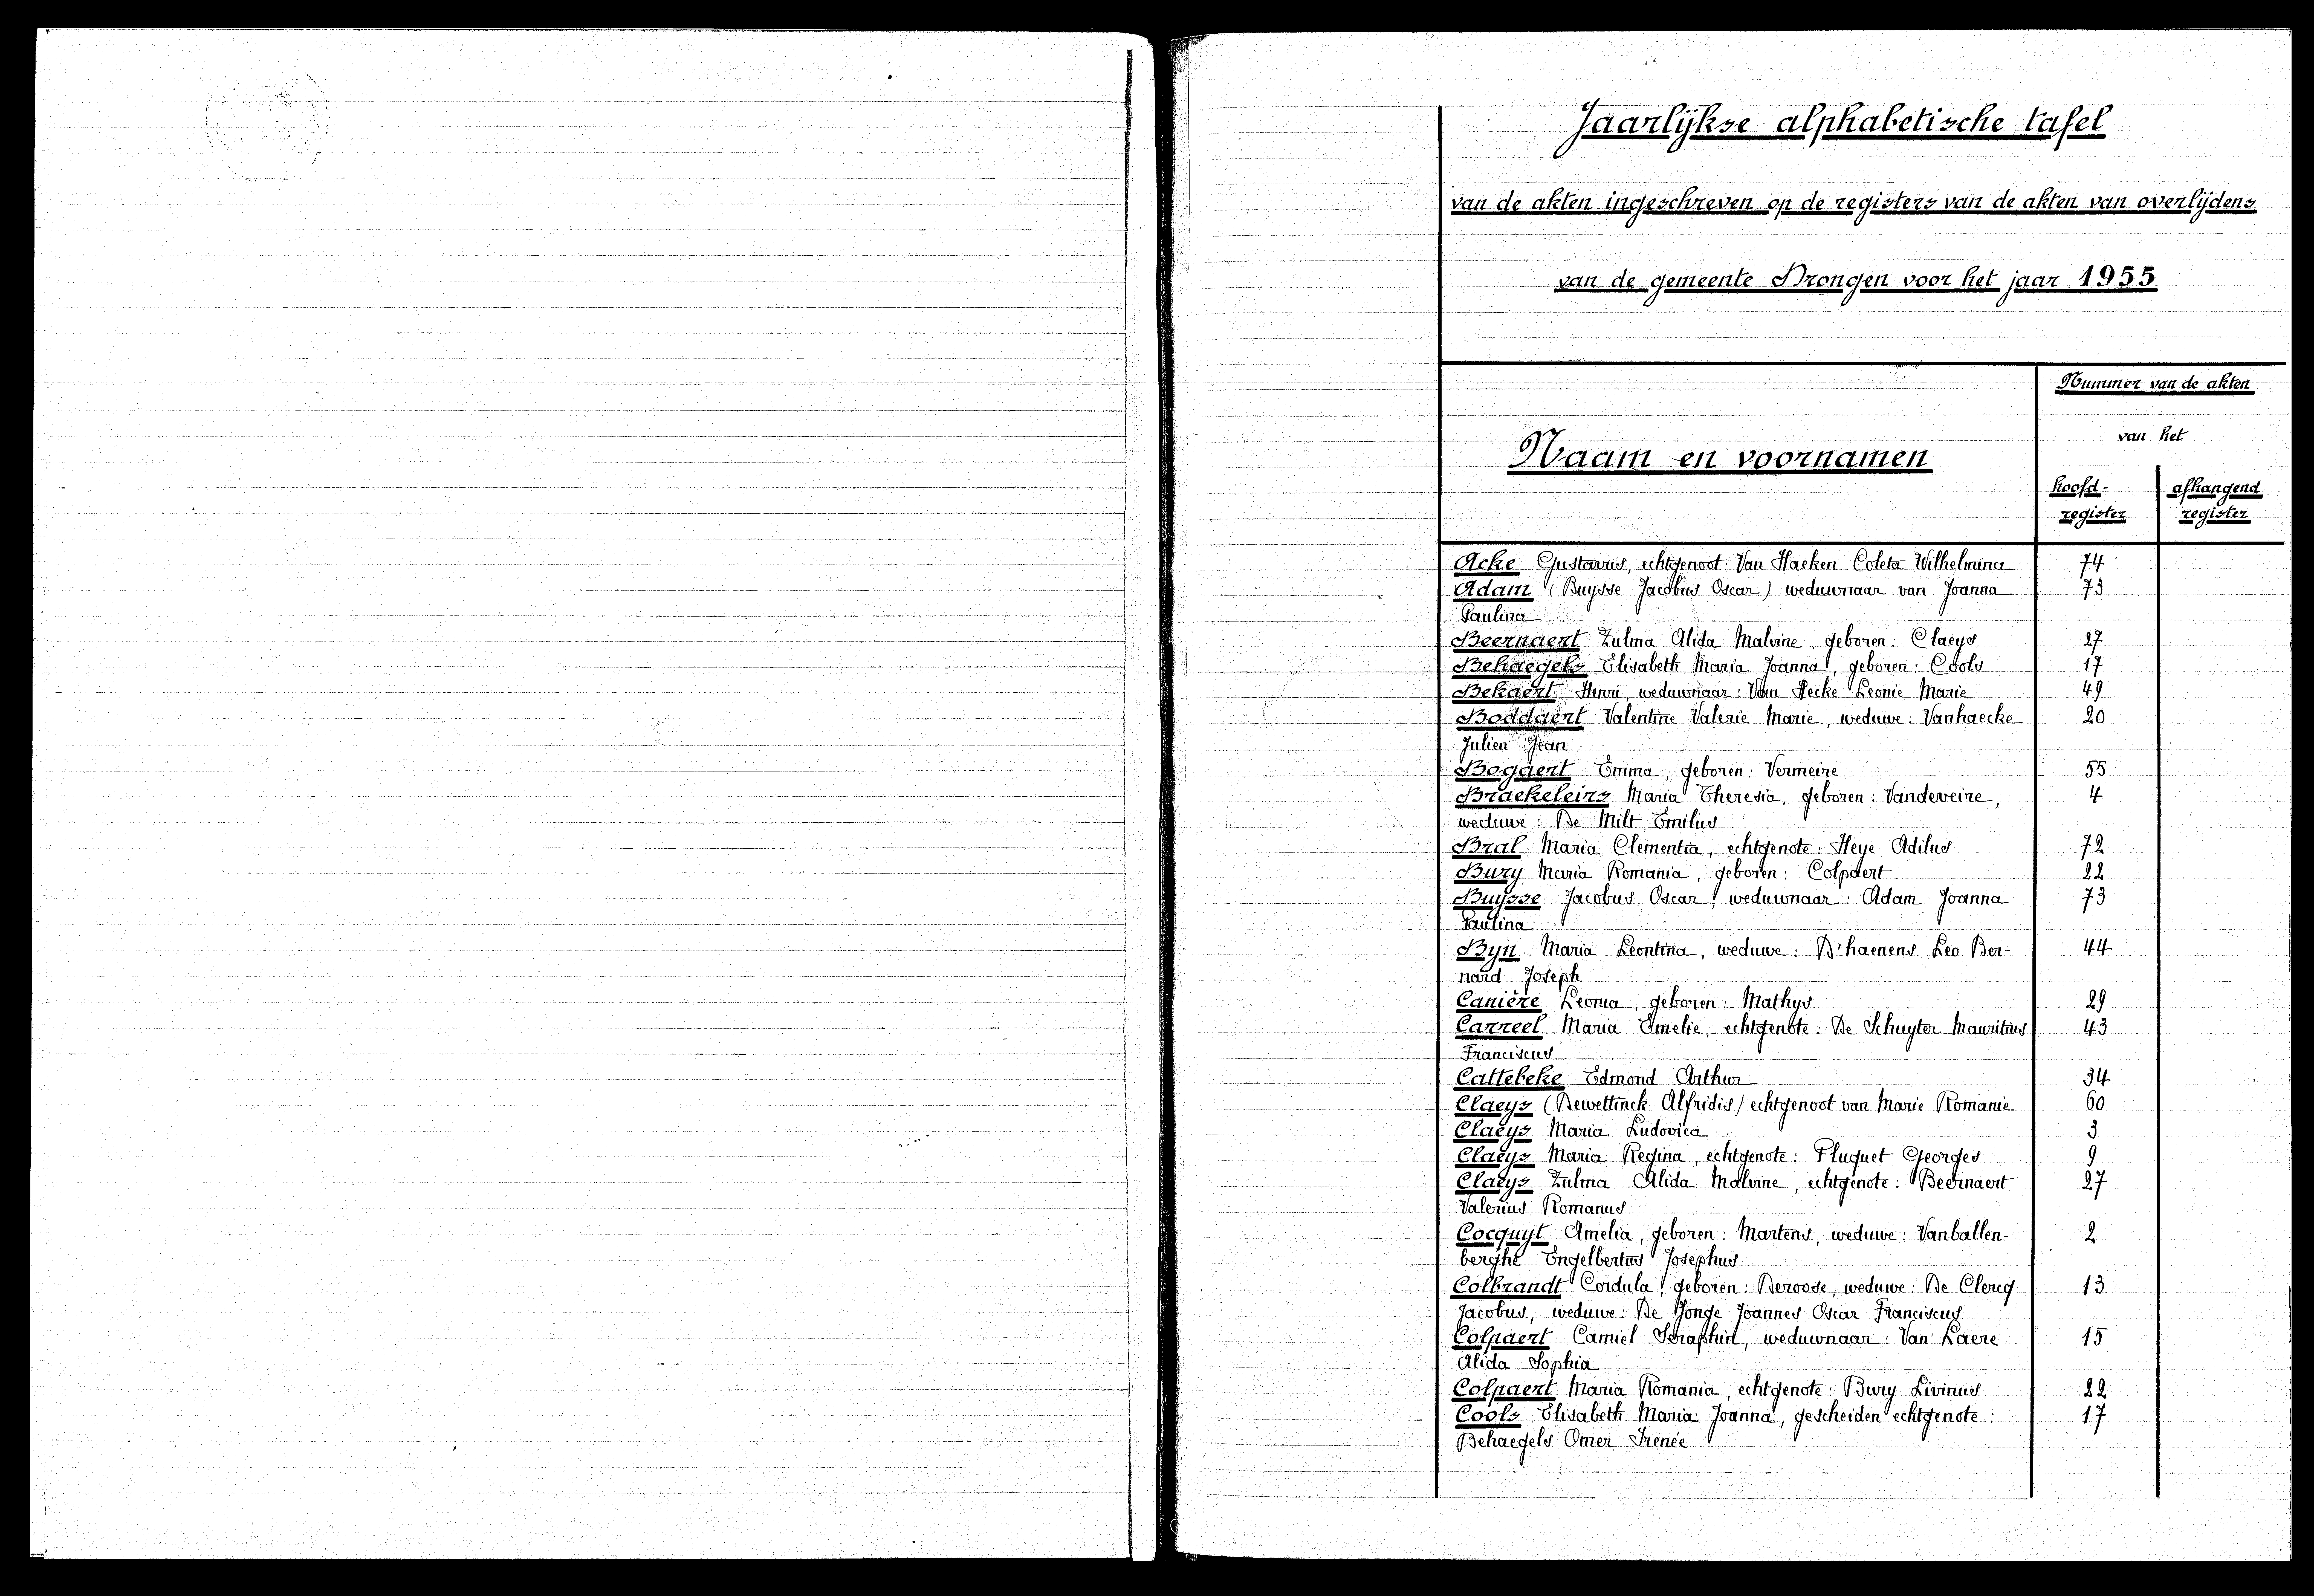 Jaarlijkse alphabetische tafel
van de akten ingeschreven op de registers van de akten van overlijdens
van de gemeente Drongen voor het jaar 1955
Nummer van de akten
van het
Naam en voornamen
hoofd- afhangend
register register
Acke Gustavus, echtgenoot: Van Haeken Coleta Wilhelmina 74
Adam (Buysse Jacobus Oscar) weduwnaar van Joanna 73
Paulina
Beernaert Zulma Alida Malvine, geboren: Claeys 27
Behaegels Elisabeth Maria Joanna, geboren: Cools 17
Bekaert Henri, weduwnaar: Van Hecke Leonie Marie 49
Boddaert Valentine Valerie Marie, weduwe: Vanhaecke 20
Julien Jean
Bogaert Emma, geboren: Vermeire 55
Braekeleirs Maria Theresia, geboren: Vandeveire, 4
weduwe: De Milt Emilus
Bral Maria Clementia, echtgenote: Heye Adilus 72
Bury Maria Romania, geboren: Colpaert 22
Buysse Jacobus Oscar, weduwnaar: Adam Joanna 73
Paulina
Byn Maria Leontina, weduwe: D'haenens Leo Ber- 44
nard Joseph
Canière Leonia, geboren: Mathys 29
Carreel Maria Emelie, echtgenote: De Schuyter Mauritius 43
Franciscus
Cattebeke Edmond Arthur 34
Claeys (Dewettinck Alfridis) echtgenoot van Marie Romanie 60
Claeys Maria Ludovica 3
Claeys Maria Regina, echtgenote: Pluquet Georges 9
Claeys Zulma Alida Malvine, echtgenote: Beernaert 27
Valerius Romanus
Cocquyt Amelia, geboren: Martens, weduwe: Vanballen- 2
berghe Engelbertus Josephus
Colbrandt Cordula, geboren: Deroose, weduwe: De Clercq 13
Jacobus, weduwe: De Jonge Joannes Oscar Franciscus
Colpaert Camiel Seraphin, weduwnaar: Van Laere 15
Alida Sophia
Colpaert Maria Romania, echtgenote: Bury Livinus 22
Cools Elisabeth Maria Joanna, gescheiden echtgenote: 17
Behaegels Omer Irenée